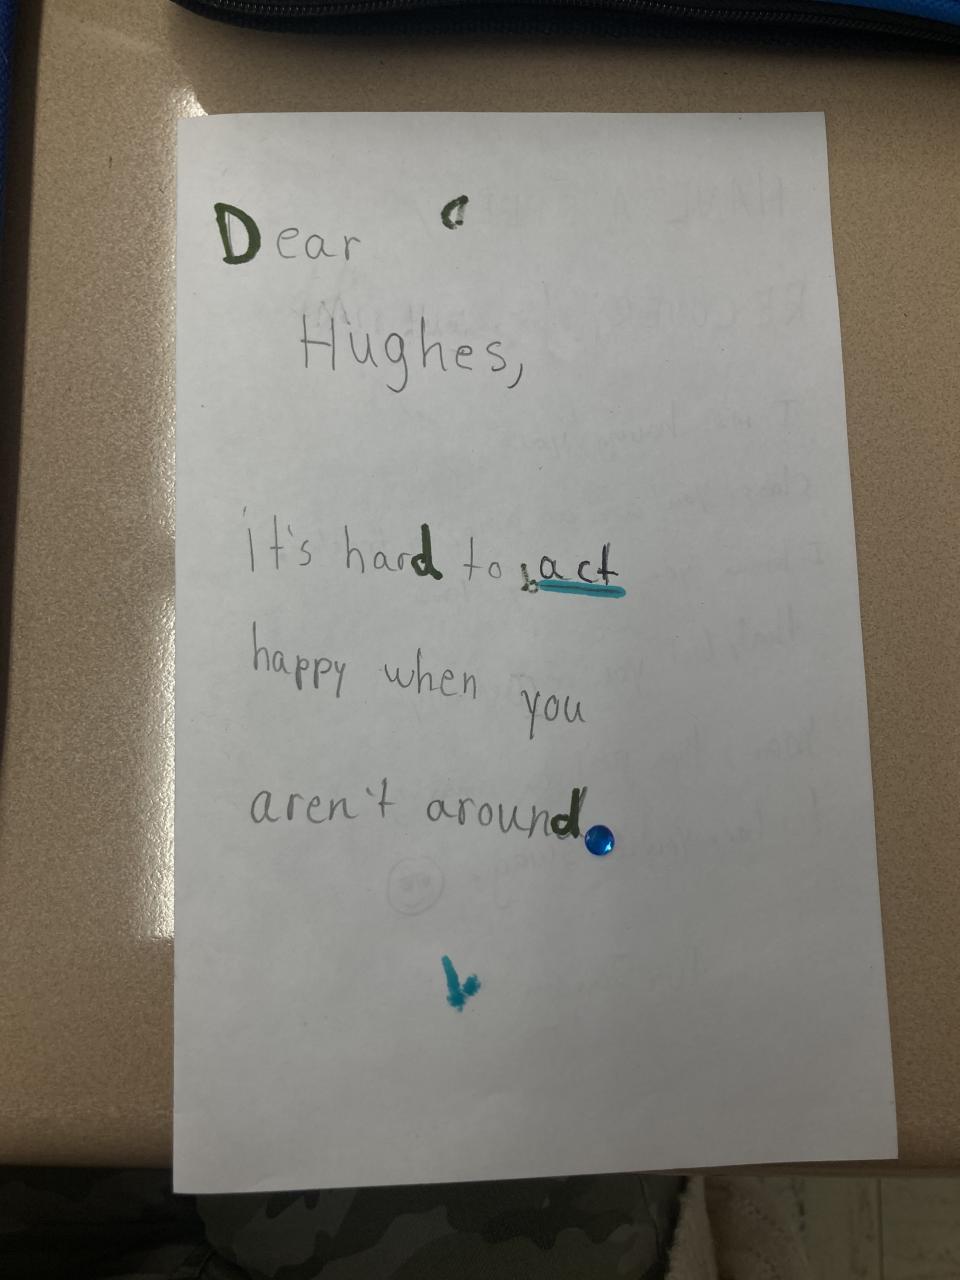 Dear
Hughes,
it's hard to act
happy when you
aren't around.